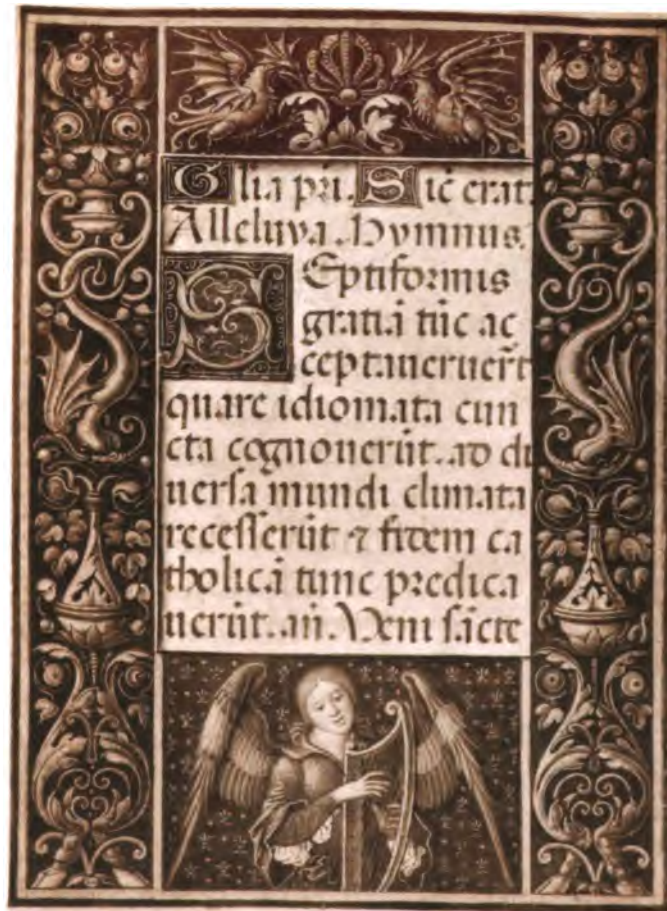 Glia pri. Sic̄ erat.
Alleluya. Hymnus.
Septiformis
gratiā tūc ac
ceptaueruēt
quare idiomata cun
cta cognouerūt. ad di
uersa mundi climata
recesserūt ⁊ fidem ca
tholicā tunc predica
uerūt. an̄. Veni sācte